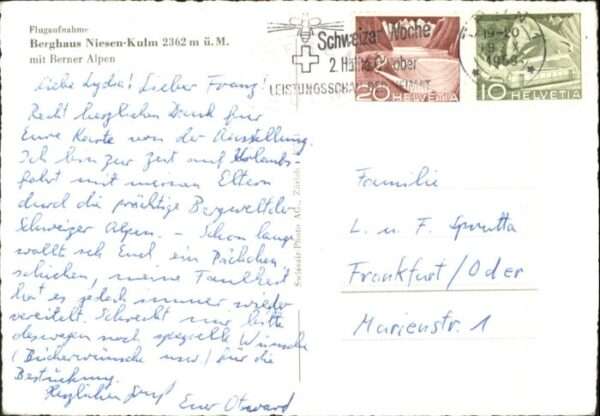 Flugaufnahme
Berghaus Niesen-Kulm 2362 m ü. M.
mit Berner Alpen
Schweizer Woche
2. Hälfte Oktober
LEISTUNGSSCHAU DER HEIMAT
20 HELVETIA
10 HELVETIA
19-20
Liebe Lydia! Lieber Franz!
Recht herzlichen Dank für
Eure Karte von der Ausstellung.
Ich bin zur Zeit auf Urlaubs-
fahrt mit meinen Eltern
durch die prächtige Bergwelt der
Schweizer Alpen. – Schon lange
wollt ich Euch ein Päckchen
schicken, meine Faulheit
hat es jedoch immer wieder
vereitelt. Schreibt mir bitte
deswegen noch spezielle Wünsche
(Bücherwünsche usw) für die
Bestückung.
Herzlichen Gruß
Euer
Swissair Photo AG., Zürich
Familie
L. u. F.
Frankfurt/Oder
Marienstr. 1